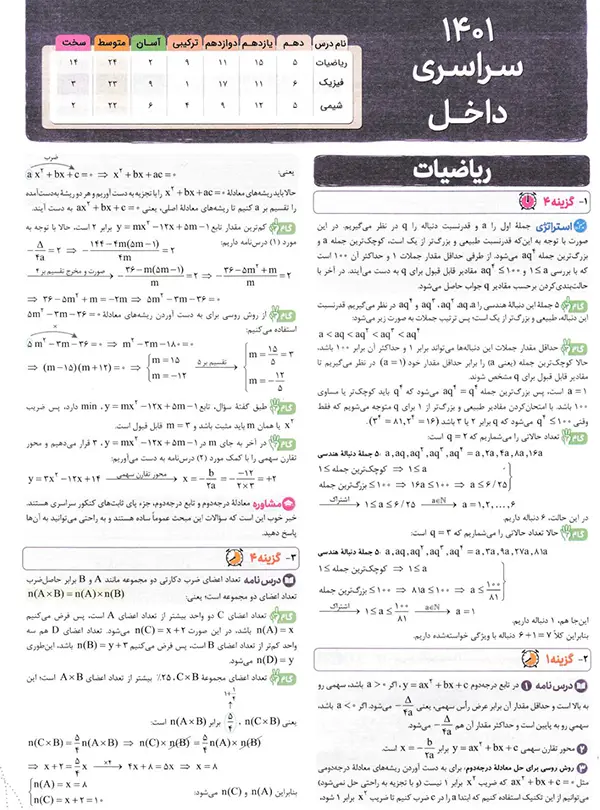 ۱۴۰۱
سراسری
داخل
نام درس دهم یازدهم دوازدهم ترکیبی آسان متوسط سخت
ریاضیات ۵ ۱۵ ۱۱ ۹ ۲ ۲۴ ۱۴
فیزیک ۶ ۱۱ ۱۷ ۱ ۹ ۲۳ ۳
شیمی ۵ ۱۲ ۹ ۴ ۶ ۲۲ ۲
ریاضیات
۱- گزینه ۴
استراتژی جملهٔ اول را a و قدرنسبت دنباله را q در نظر می‌گیریم. در این
صورت با توجه به این‌که قدرنسبت طبیعی و بزرگ‌تر از یک است، کوچک‌ترین جمله a و
بزرگ‌ترین جمله aq⁴ می‌شود. از طرفی حداقل مقدار جملات ۱ و حداکثر آن ۱۰۰ است
که با بررسی ۱ ≤ a و aq⁴ ≤ ۱۰۰ مقادیر قابل قبول برای q به دست می‌آیند. در آخر با
حالت‌بندی‌کردن برحسب مقادیر q جواب حاصل می‌شود.
گام ۱ ۵ جملهٔ این دنبالهٔ هندسی را a، aq، aq²، aq³ و aq⁴ در نظر می‌گیریم. قدرنسبت
این دنباله، طبیعی و بزرگ‌تر از یک است؛ پس ترتیب جملات به صورت زیر می‌شود:
a < aq < aq² < aq³ < aq⁴
گام ۲ حداقل مقدار جملات این دنباله‌ها می‌تواند برابر ۱ و حداکثر آن برابر ۱۰۰ باشد.
حالا کوچک‌ترین جمله (یعنی a) را برابر حداقل مقدار خود (a = ۱) در نظر می‌گیریم تا
مقادیر قابل قبول برای q مشخص شوند.
a = ۱ است، پس بزرگ‌ترین جمله aq⁴ = q⁴ می‌شود که q⁴ باید کوچک‌تر یا مساوی
۱۰۰ باشد. با امتحان‌کردن مقادیر طبیعی و بزرگ‌تر از ۱ برای q متوجه می‌شویم که فقط
وقتی q⁴ ≤ ۱۰۰ می‌شود که q برابر ۲ یا ۳ باشد (۲⁴ = ۱۶, ۳⁴ = ۸۱).
گام ۳ تعداد حالاتی را می‌شماریم که q = ۲ است:
۵ جملهٔ دنبالهٔ هندسی: a, aq, aq², aq³, aq⁴ = a, ۲a, ۴a, ۸a, ۱۶a
۱ ≤ کوچک‌ترین جمله ⇒ ۱ ≤ a
بزرگ‌ترین جمله ≤ ۱۰۰ ⇒ ۱۶a ≤ ۱۰۰ ⇒ a ≤ ۶/۲۵
اشتراک → ۱ ≤ a ≤ ۶/۲۵ a∈ℕ → a = ۱, ۲, ..., ۶
در این حالت، ۶ دنباله داریم.
گام ۴ حالا تعداد حالاتی را می‌شماریم که q = ۳ است:
۵ جملهٔ دنبالهٔ هندسی: a, aq, aq², aq³, aq⁴ = a, ۳a, ۹a, ۲۷a, ۸۱a
۱ ≤ کوچک‌ترین جمله ⇒ ۱ ≤ a
بزرگ‌ترین جمله ≤ ۱۰۰ ⇒ ۸۱a ≤ ۱۰۰ ⇒ a ≤ ۱۰۰/۸۱
اشتراک → ۱ ≤ a ≤ ۱۰۰/۸۱ a∈ℕ → a = ۱
این‌جا هم، ۱ دنباله داریم.
بنابراین کلاً ۷ = ۱ + ۶ دنباله با ویژگی خواسته‌شده داریم.
۲- گزینه ۱
درس نامه ۱ در تابع درجه‌دوم y = ax² + bx + c، اگر a > ۰ باشد، سهمی رو
به بالا است و حداقل مقدار آن برابر عرض رأس سهمی، یعنی −Δ/۴a می‌شود. اگر a < ۰ باشد،
سهمی رو به پایین است و حداکثر مقدار آن هم −Δ/۴a می‌شود.
۲ محور تقارن سهمی y = ax² + bx + c برابر x = −b/۲a است.
۳ روش روسی برای حل معادلهٔ درجه‌دوم: برای به دست آوردن ریشه‌های معادلهٔ درجه‌دومی
مثل ax² + bx + c = ۰ که ضریب x² برابر ۱ نیست (و با تجزیه به راحتی حل نمی‌شود)
می‌توانیم از این تکنیک استفاده کنیم که ابتدا a را در c ضرب کنیم تا ضریب x² برابر ۱ شود.
یعنی:
ضرب
ax² + bx + c = ۰ ⇒ x² + bx + ac = ۰
حالا باید ریشه‌های معادلهٔ x² + bx + ac = ۰ را با تجزیه به دست آوریم و هر دو ریشهٔ به‌دست‌آمده
را تقسیم بر a کنیم تا ریشه‌های معادلهٔ اصلی، یعنی ax² + bx + c = ۰ به دست آیند.
گام ۱ کم‌ترین مقدار تابع y = mx² − ۱۲x + ۵m − ۱ برابر ۲ است، حالا با توجه به
مورد (۱) درس‌نامه داریم:
−Δ/۴a = ۲ ⇒ −(۱۴۴ − ۴m(۵m − ۱))/۴m = ۲
صورت و مخرج تقسیم بر ۴ → −(۳۶ − m(۵m − ۱))/m = ۲ ⇒ −(۳۶ − ۵m² + m)/m = ۲
⇒ ۳۶ − ۵m² + m = −۲m ⇒ ۵m² − ۳m − ۳۶ = ۰
گام ۲ از روش روسی برای به دست آوردن ریشه‌های معادلهٔ ۵m² − ۳m − ۳۶ = ۰
استفاده می‌کنیم:
×
۵m² − ۳m − ۳۶ = ۰ ⇒ m² − ۳m − ۱۸۰ = ۰
⇒ (m − ۱۵)(m + ۱۲) = ۰ ⇒ {m = ۱۵, m = −۱۲ تقسیم بر ۵ → {m = ۱۵/۵ = ۳, m = −۱۲/۵
گام ۳ طبق گفتهٔ سؤال، تابع y = mx² − ۱۲x + ۵m − ۱، min دارد، پس ضریب
x² یا همان m باید مثبت باشد و m = ۳ قابل قبول است.
گام ۴ در آخر به جای m در y = mx² − ۱۲x + ۵m − ۱، ۳ قرار می‌دهیم و محور
تقارن سهمی را با کمک مورد (۲) درس‌نامه به دست می‌آوریم:
y = ۳x² − ۱۲x + ۱۴ محور تقارن سهمی → x = −b/۲a = −(−۱۲)/(۲×۳) = +۲
مشاوره معادلهٔ درجه‌دوم و تابع درجه‌دوم، جزء پای ثابت‌های کنکور سراسری هستند.
خبر خوب این است که سؤالات این مبحث عموماً ساده هستند و به راحتی می‌توانید به آن‌ها
پاسخ دهید.
۳- گزینه ۴
درس نامه تعداد اعضای ضرب دکارتی دو مجموعه مانند A و B برابر حاصل‌ضرب
تعداد اعضای دو مجموعه است؛ یعنی: n(A×B) = n(A)×n(B)
گام ۱ تعداد اعضای C دو واحد بیشتر از تعداد اعضای A است، پس فرض می‌کنیم
n(A) = x باشد، در این صورت n(C) = x + ۲ می‌شود. تعداد اعضای D هم سه
واحد کم‌تر از تعداد اعضای B است، پس فرض می‌کنیم n(B) = y + ۳ باشد، این‌طوری
n(D) = y می‌شود.
گام ۲ تعداد اعضای مجموعهٔ C×B، ۲۵٪ بیشتر از تعداد اعضای A×B است؛ این
یعنی n(C×B)، ۵/۴ برابر n(A×B) است:
n(C×B) = ۵/۴ n(A×B) ⇒ n(C)×n(B) = ۵/۴ n(A)×n(B)
⇒ x + ۲ = ۵/۴ x ×۴ → ۴x + ۸ = ۵x ⇒ x = ۸
بنابراین n(A) و n(C) می‌شود: {n(A) = x = ۸
n(C) = x + ۲ = ۱۰